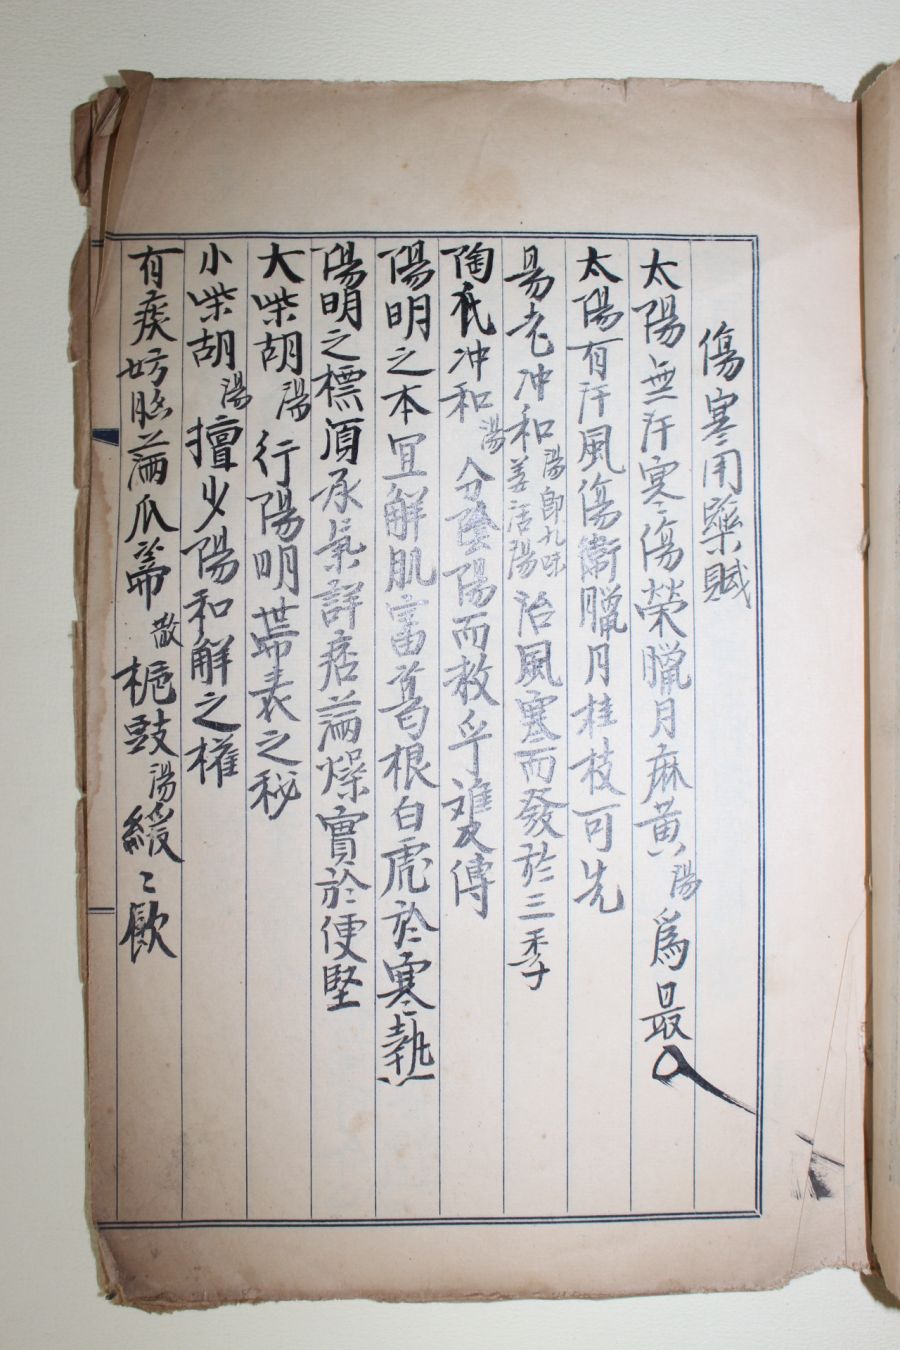 傷寒用藥賦
太陽無汗寒傷榮臘月麻黃湯爲最
太陽有汗風傷衛臘月桂枝可先
易老冲和湯卽九味羌活湯治風寒而發於三季
陶氏冲和湯分陰陽而救乎難傳
陽明之本宜解肌富葛根白虎於寒熱
陽明之標須承氣詳痞滿燥實於便堅
大柴胡湯行陽明帶表之秘
小柴胡湯擅少陽和解之權
有痰妨膈滿瓜蒂散梔豉湯緩〻飮